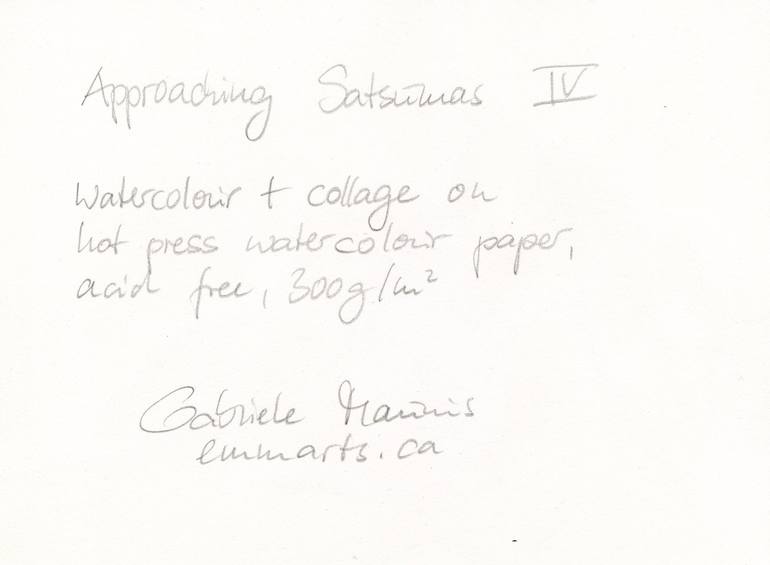 Approaching Satsumas IV
watercolour + collage on
hot press watercolour paper,
acid free, 300g/m²
Gabriele
emmarts.ca